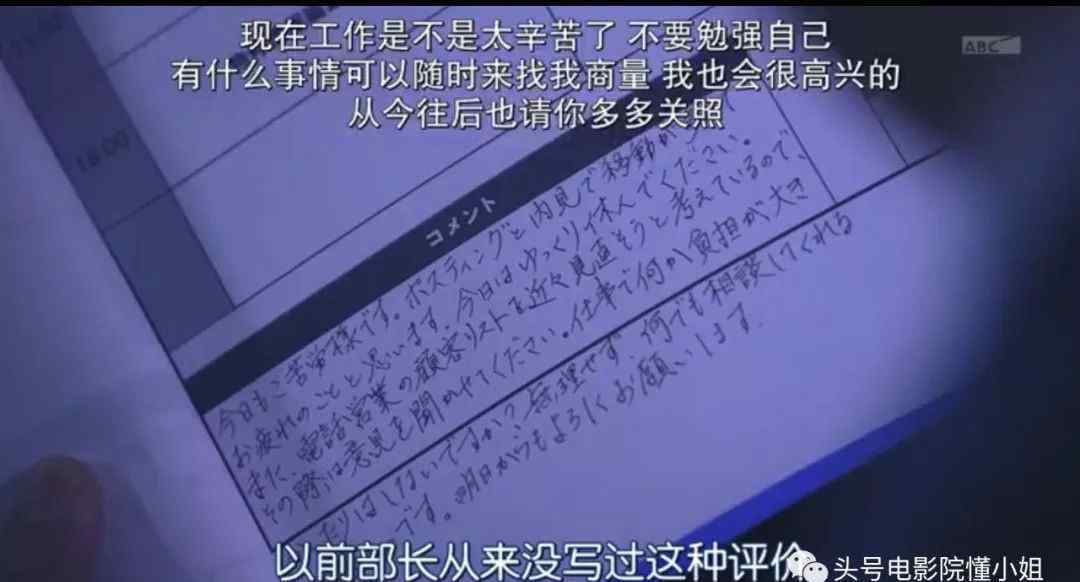 现在工作是不是太辛苦了 不要勉强自己
有什么事情可以随时来找我商量 我也会很高兴的
从今往后也请你多多关照
ABC
18:00
コメント
今日もご苦労様です。ポスティングと内見で移動が
お疲れのことと思います。今日はゆっくり休んでください。
また、電話営業の顧客リストを近々見直そうと考えているので、
その際は意見を聞かせてください。仕事で何か負担が大き
たりはしないですか？無理せず、何でも相談してくれる
です。明日からもよろしくお願いします。
以前部长从来没写过这种评价
头号电影院懂小姐